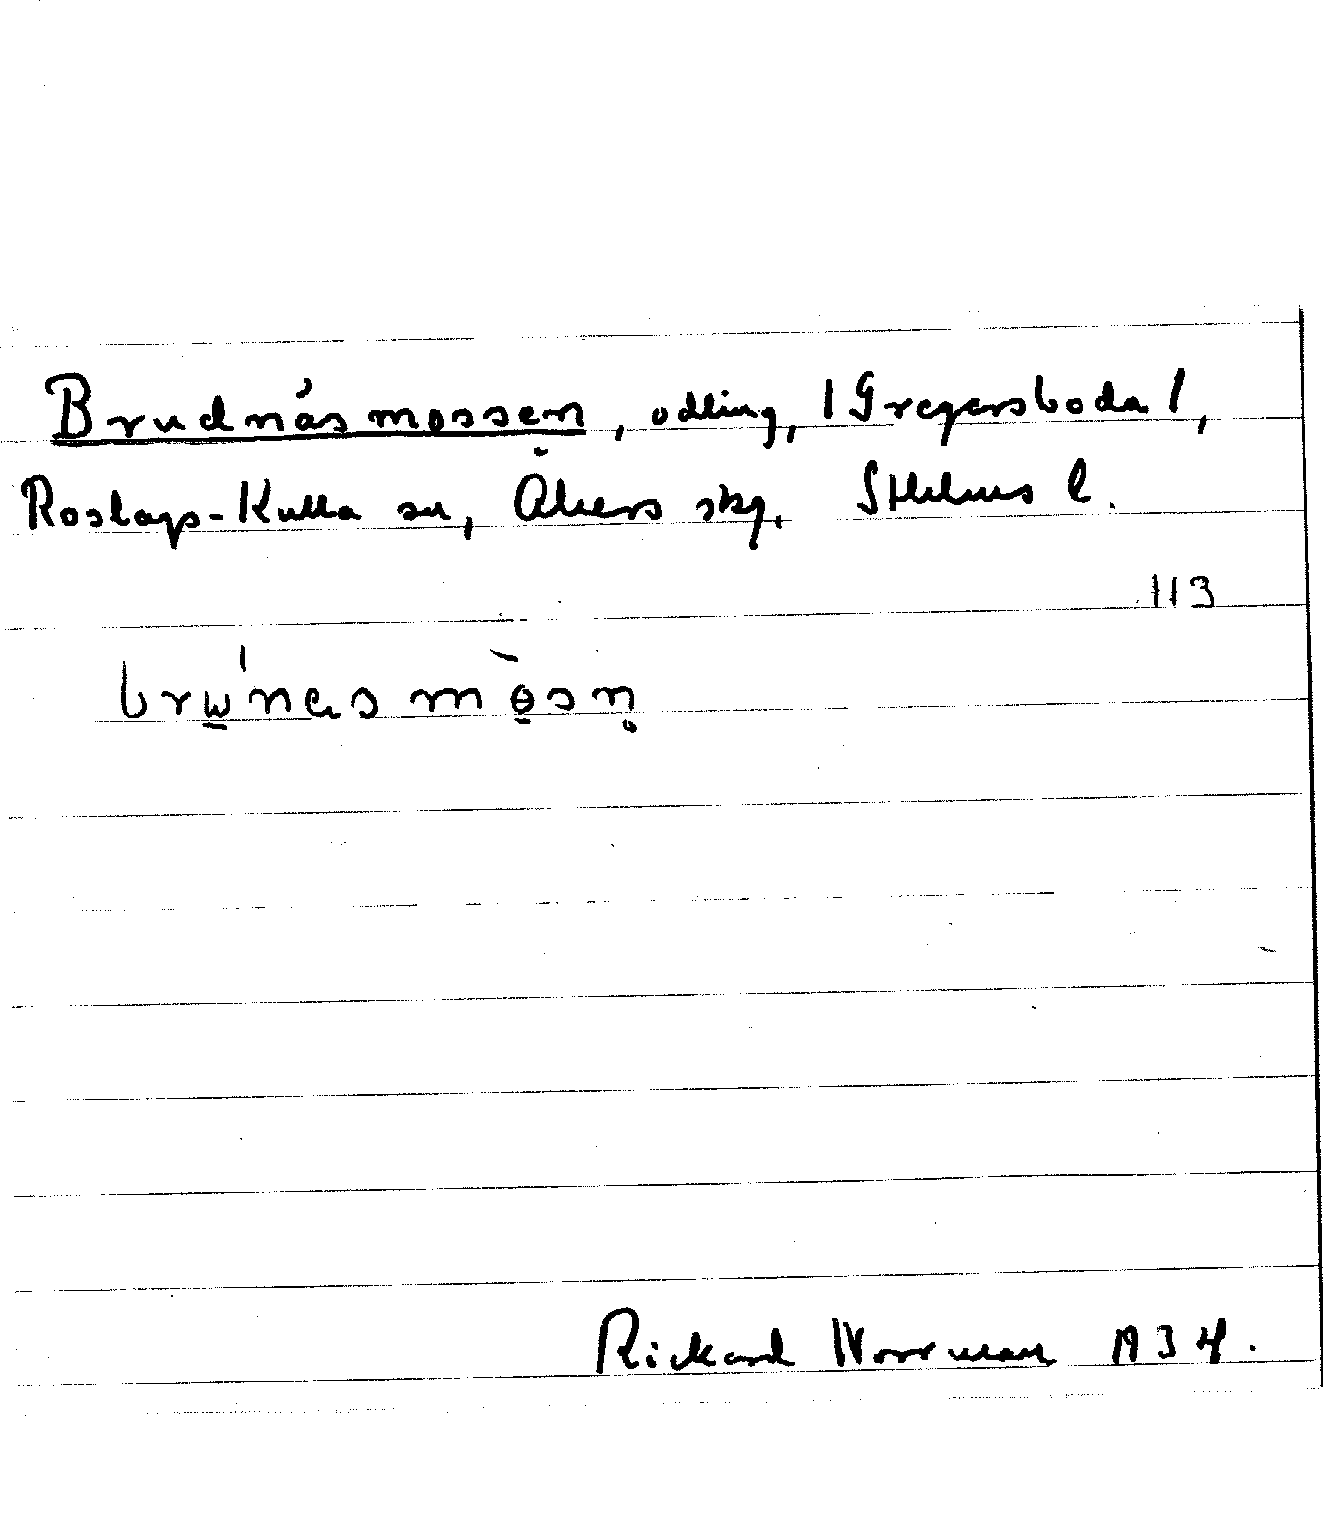 Brudnäsmossen, odling, /Gregersboda/,
Roslags-Kulla sn, Åkers skg, Sthlms l.
113
Rickard Norrman 1934.